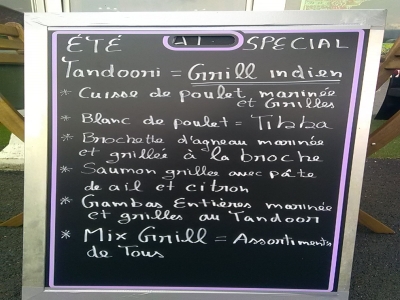 ÉTÉ SPECIAL
Tandoori = Grill indien
* Cuisse de poulet marinée
et Grillés
* Blanc de poulet = Tikka
* Brochette d'agneau marinée
et grillée à la broche
* Saumon grillée avec pâte
de ail et citron
* Gambas Entières marinée
et grillés au Tandoor
* Mix Grill = Assortiments
de Tous